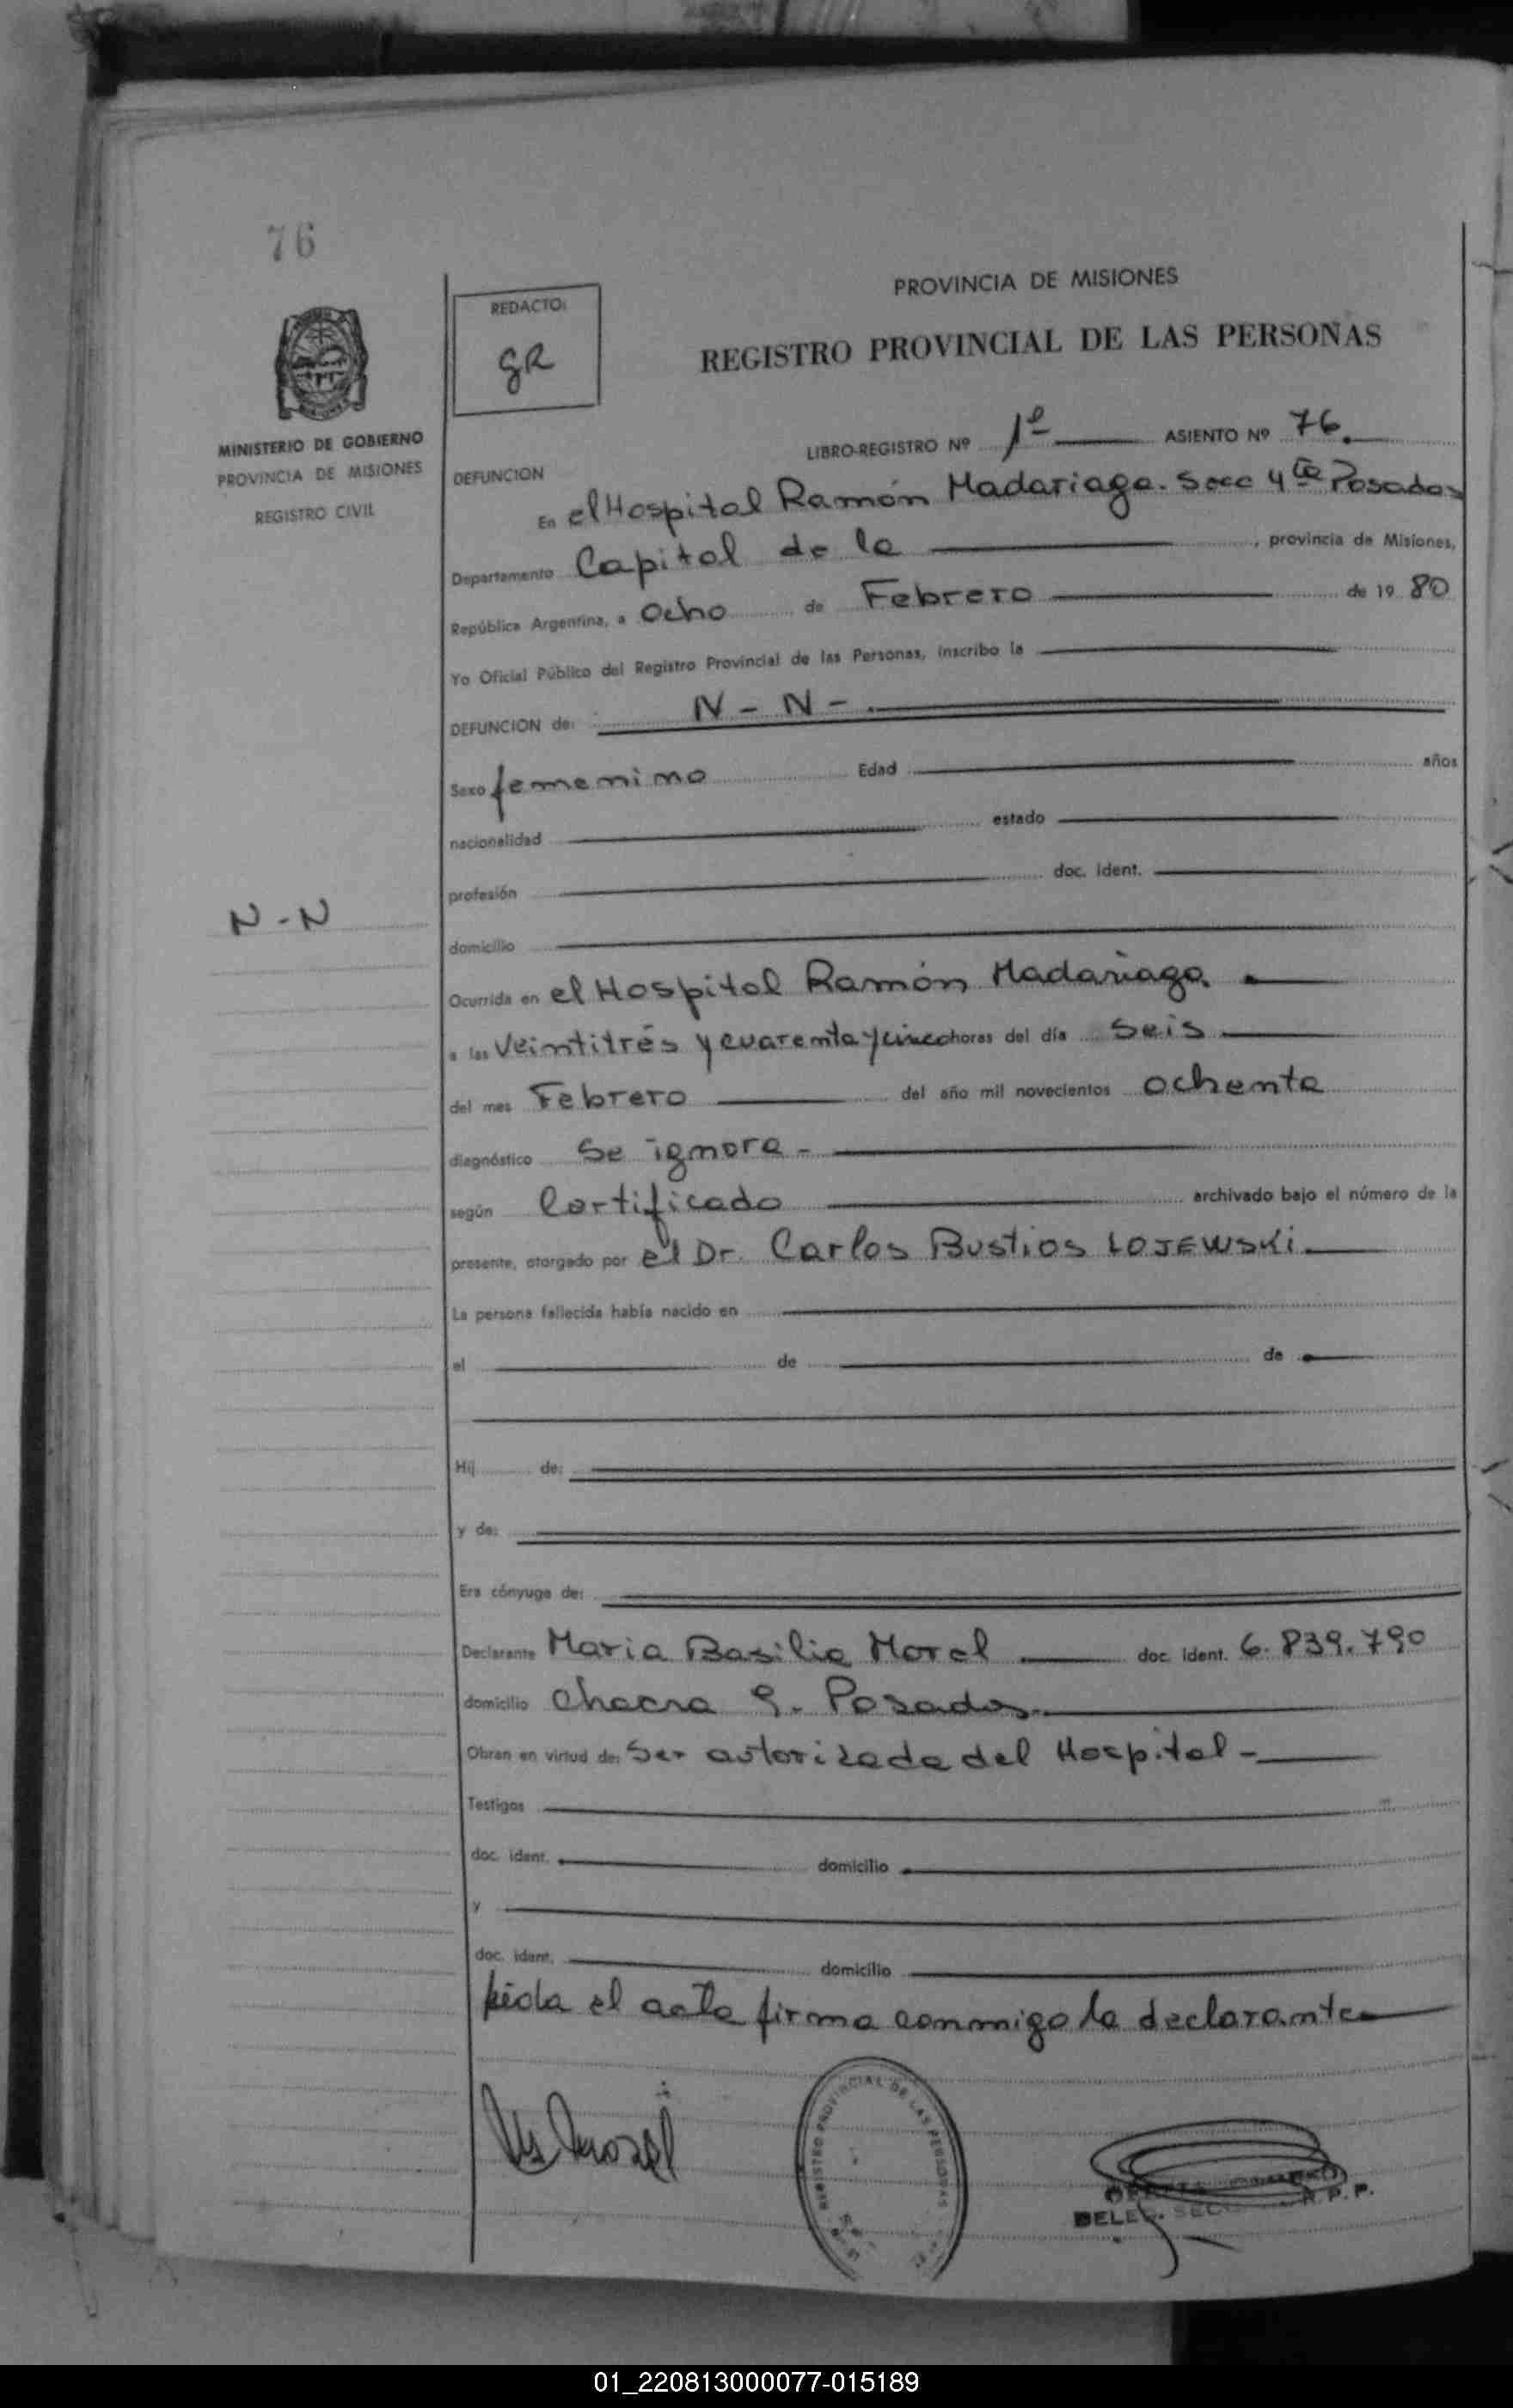 76
PROVINCIA DE MISIONES
REDACTO:
gR
REGISTRO PROVINCIAL DE LAS PERSONAS
MINISTERIO DE GOBIERNO
PROVINCIA DE MISIONES
REGISTRO CIVIL
LIBRO-REGISTRO Nº 1º ASIENTO Nº 76.
DEFUNCION
En el Hospital Ramón Madariaga. Secc 4ta Posadas
Departamento Capital de la , provincia de Misiones,
República Argentina, a Ocho de Febrero de 19 80
Yo Oficial Público del Registro Provincial de las Personas, inscribo la
DEFUNCION de: N - N - .
Sexo femenino Edad años
nacionalidad estado
profesión doc. ident.
N - N
domicilio
Ocurrida en el Hospital Ramón Madariaga.
a las Veintitrés y cuarenta y cinco horas del día Seis
del mes Febrero del año mil novecientos ochenta
diagnóstico Se ignora -
según Certificado archivado bajo el número de la
presente, otorgado por el Dr. Carlos Bustios LOJEWSKi
La persona fallecida había nacido en
el de de
Hij de:
y de:
Era cónyuge de:
Declarante Maria Basilia Morel doc. ident. 6.839.790
domicilio Chacra 9. Posadas
Obran en virtud de: Ser autorizada del Hospital -
Testigos
doc. ident. domicilio
y
doc. ident. domicilio
Leida el acta firma conmigo la declarante
REGISTRO PROVINCIAL DE LAS PERSONAS
DELEG. SEC R.P.P.
01_220813000077-015189